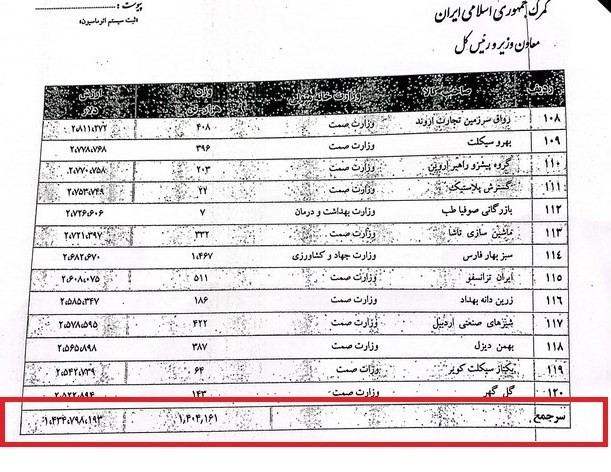 گمرک جمهوری اسلامی ایران
معاون وزیر و رئیس کل
پیوست :
«ثبت سیستم اتوماسیون»
ردیف صاحب کالا وزارت خانه وزن ارزش
۱۰۸ رواق سرزمین تجارت اروند وزارت صمت ۴۰۸ ۲،۸۱۱،۲۷۲
۱۰۹ بهرو سیکلت وزارت صمت ۳۹۶ ۲،۷۷۸،۷۶۸
۱۱۰ گروه پیشرو راهبر اروین وزارت صمت ۲۰۳ ۲،۷۷۰،۷۵۸
۱۱۱ گسترش پلاستیک وزارت صمت ۲۲ ۲،۷۵۳،۷۴۹
۱۱۲ بازرگانی صوفیا طب وزارت بهداشت و درمان ۷ ۲،۷۲۶،۶۰۶
۱۱۳ ماشین سازی تاشا وزارت صمت ۳۳۲ ۲،۷۲۱،۳۹۷
۱۱۴ سبز بهار فارس وزارت جهاد و کشاورزی ۱،۴۶۷ ۲،۶۸۲،۶۷۰
۱۱۵ ایران ترانسفو وزارت صمت ۵۱۱ ۲،۶۰۸،۰۷۵
۱۱۶ زرین دانه بهداد وزارت صمت ۱۸۶ ۲،۵۸۵،۳۴۷
۱۱۷ شیرهای صنعتی اردبیل وزارت صمت ۴۲۲ ۲،۵۷۸،۵۹۵
۱۱۸ بهمن دیزل وزارت صمت ۳۸۷ ۲،۵۶۵،۸۹۸
۱۱۹ یکتاز سیکلت کویر وزارت صمت ۶۴ ۲،۵۴۲،۷۳۹
۱۲۰ گل گهر وزارت صمت ۱۴۳ ۲،۵۲۲،۸۹۴
سرجمع ۱،۴۰۴،۱۶۱ ۱،۴۳۴،۷۹۸،۱۹۳